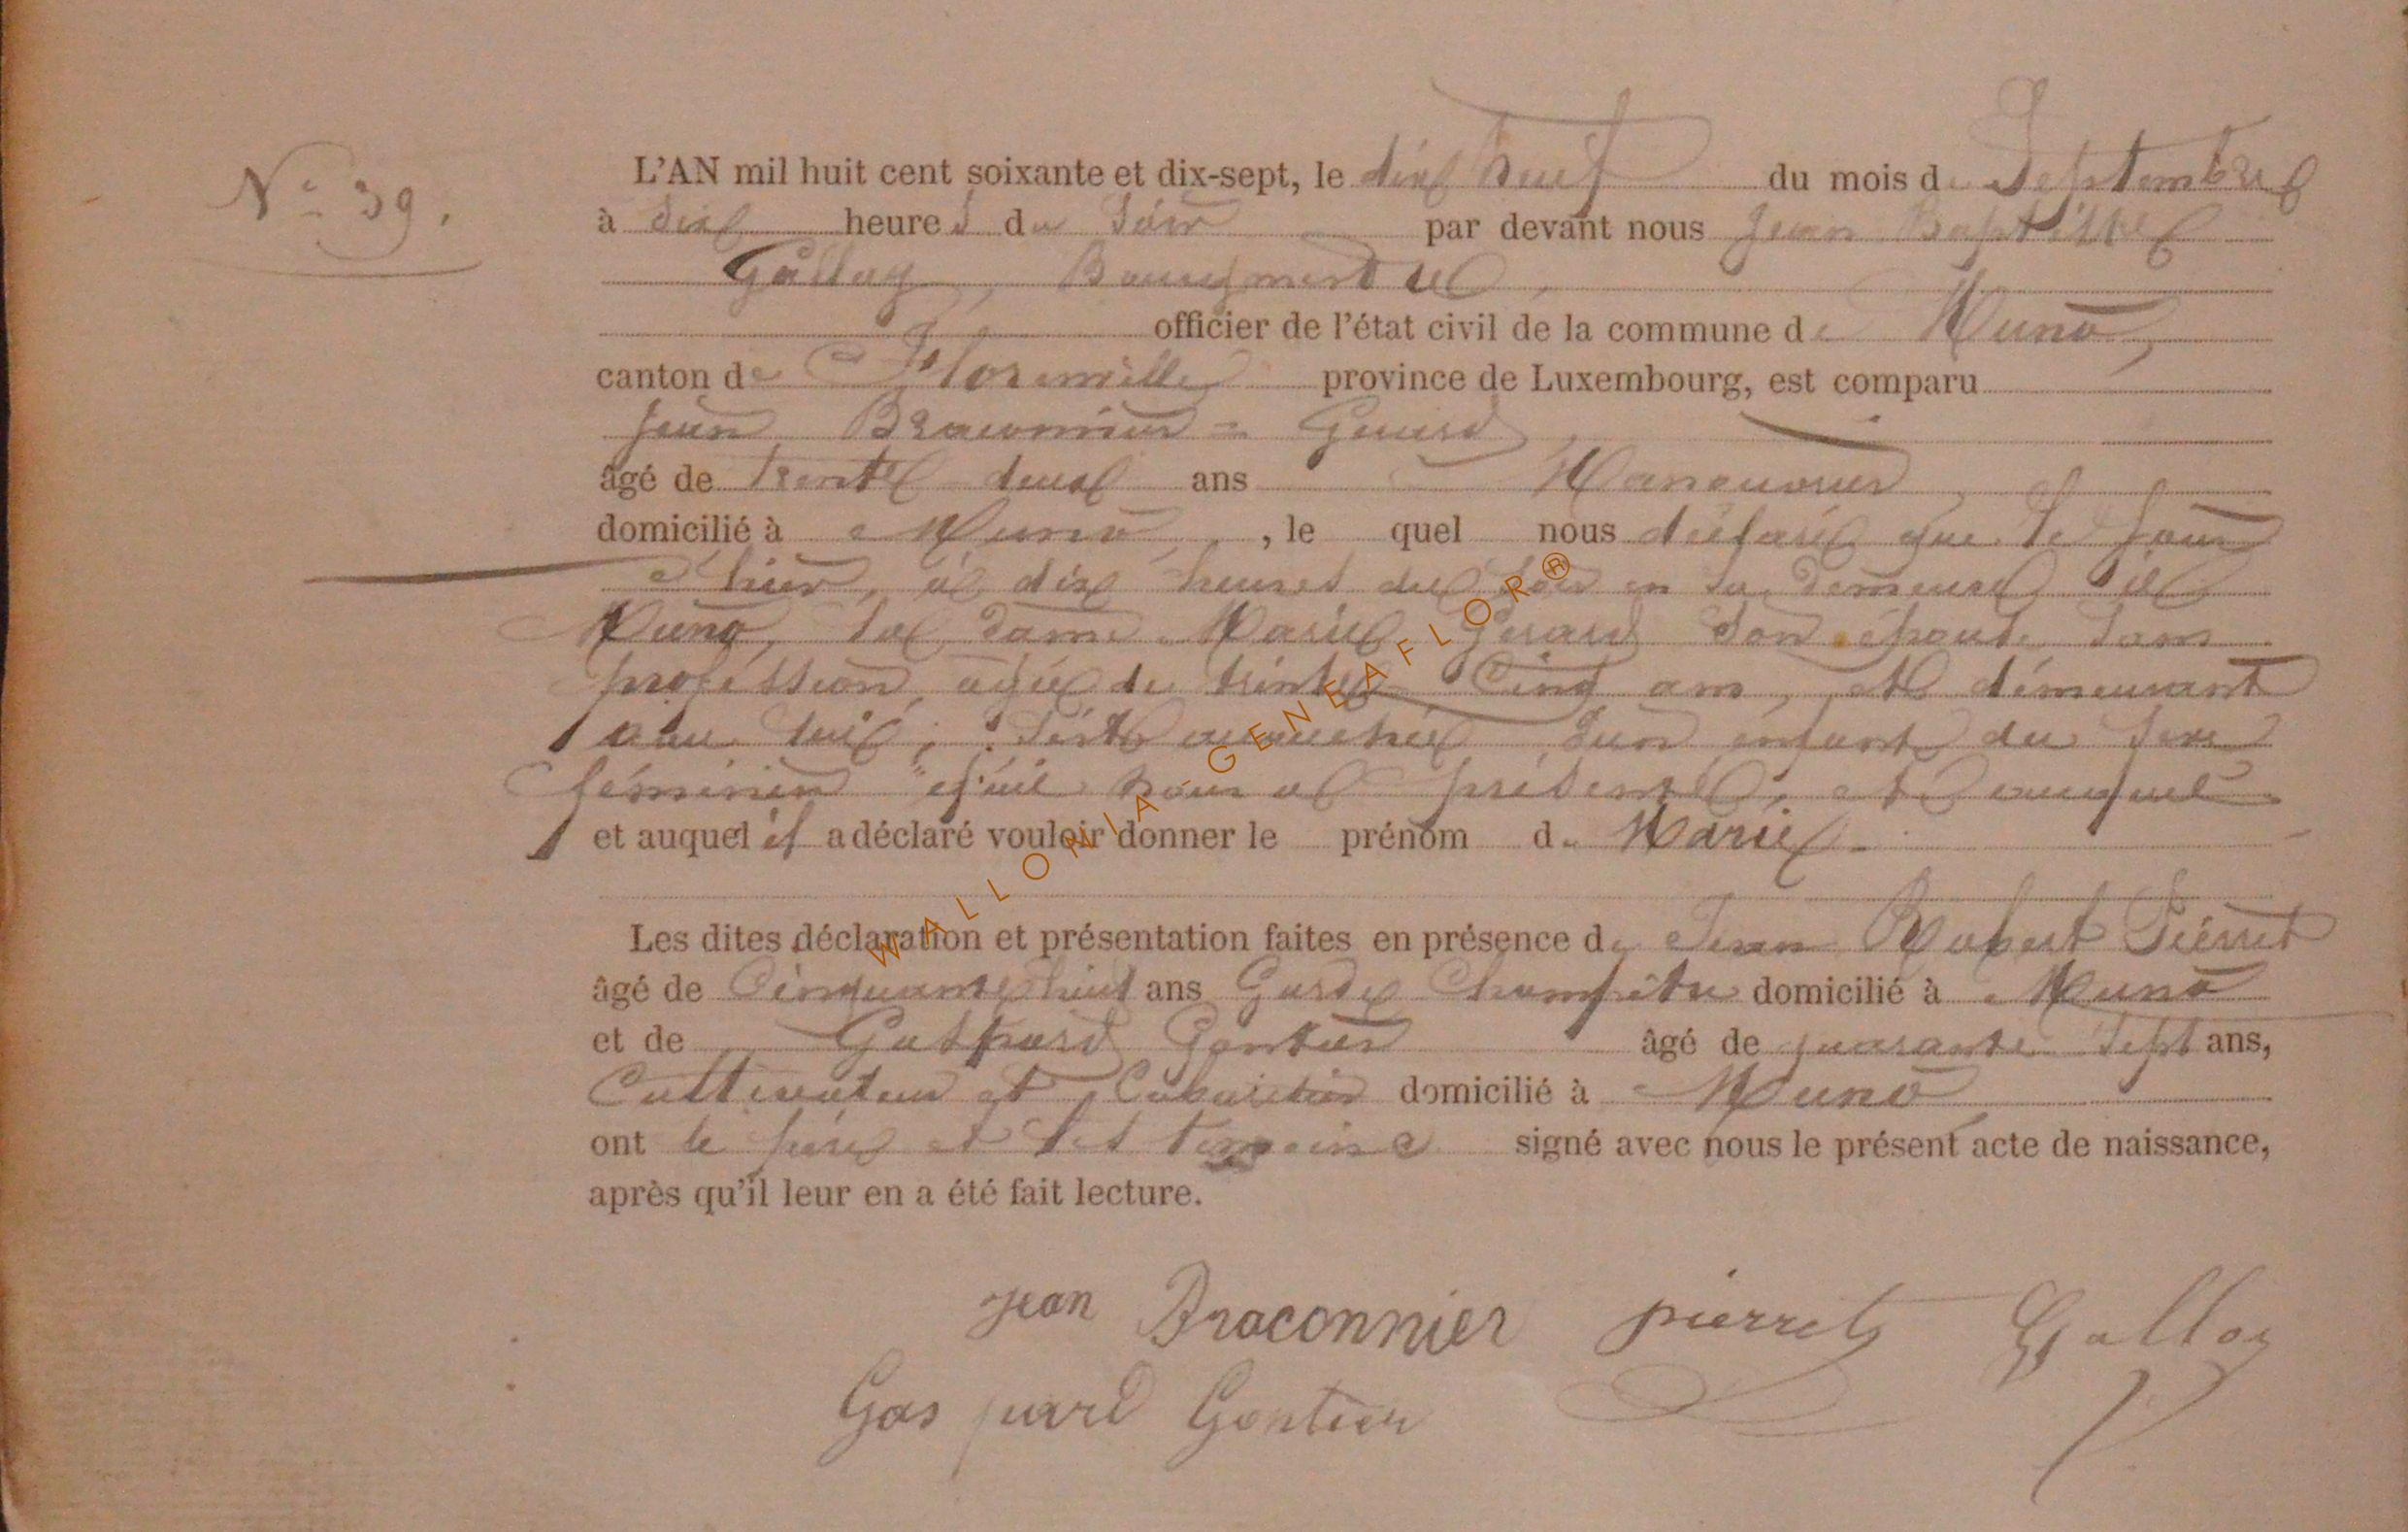 N° 39.
L'AN mil huit cent soixante et dix-sept, le dix neuf du mois de Septembre
à six heures du Soir par devant nous Jean Baptiste
Galloy, Bourgmestre,
officier de l'état civil de la commune de Muno,
canton de Florenville province de Luxembourg, est comparu
Jean Braconnier = Gerard
âgé de trente deux ans Manouvrier,
domicilié à Muno, le quel nous déclaré que le jour
hier, à dix heures du soir en sa demeure à
Muno, la dame Marie Gerard son épouse sans
profession, agée de trente Cinq ans, et démeurant
avec lui, s'est accouchée d'un enfant du sexe
féminin qu'il nous a présenté, et auquel
et auquel il a déclaré vouloir donner le prénom de Marie.
Les dites déclaration et présentation faites en présence de Jean Hubert Pierret
âgé de Cinquante huit ans Garde Champêtre domicilié à Muno
et de Gaspard Gontier âgé de quarante sept ans,
Cultivateur et Cabaretier domicilié à Muno
ont le père et les temoins signé avec nous le présent acte de naissance,
après qu'il leur en a été fait lecture.
Jean Braconnier pierret Galloy
Gaspard Gontier
WALLONIA-GENEAFLOR®